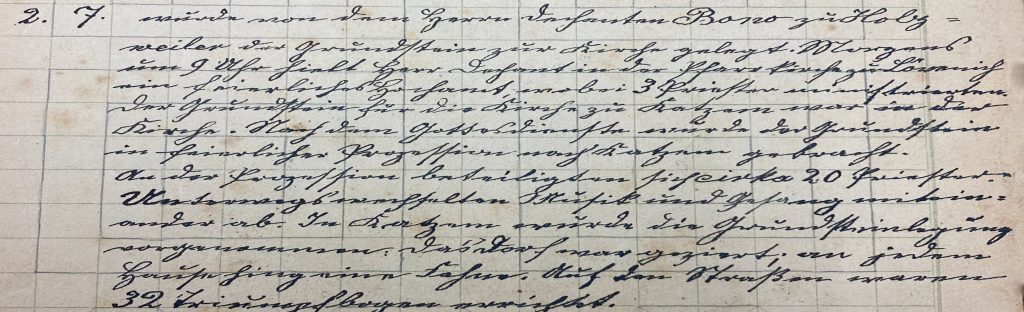 2. 7. wurde von dem Herrn Dechanten Bono zu Holz=
weiler der Grundstein zur Kirche gelegt. Morgens
um 9 Uhr hielt Herr Dechant in der Pfarrkirche zu Lövenich
ein feierliches Hochamt, wobei 3 Priester ministrierten.
Der Grundstein für die Kirche zu Katzem war in der
Kirche. Nach dem Gottesdienste wurde der Grundstein
in feierlicher Prozession nach Katzem gebracht.
An der Prozession beteiligten sich cirka 20 Priester.
Unterwegs wechselten Musik und Gesang mitein=
ander ab. In Katzem wurde die Grundsteinlegung
vorgenommen. Das Dorf war geziert; an jedem
Hause hing eine Fahne. Auf den Straßen waren
32 Triumpfbogen errichtet.